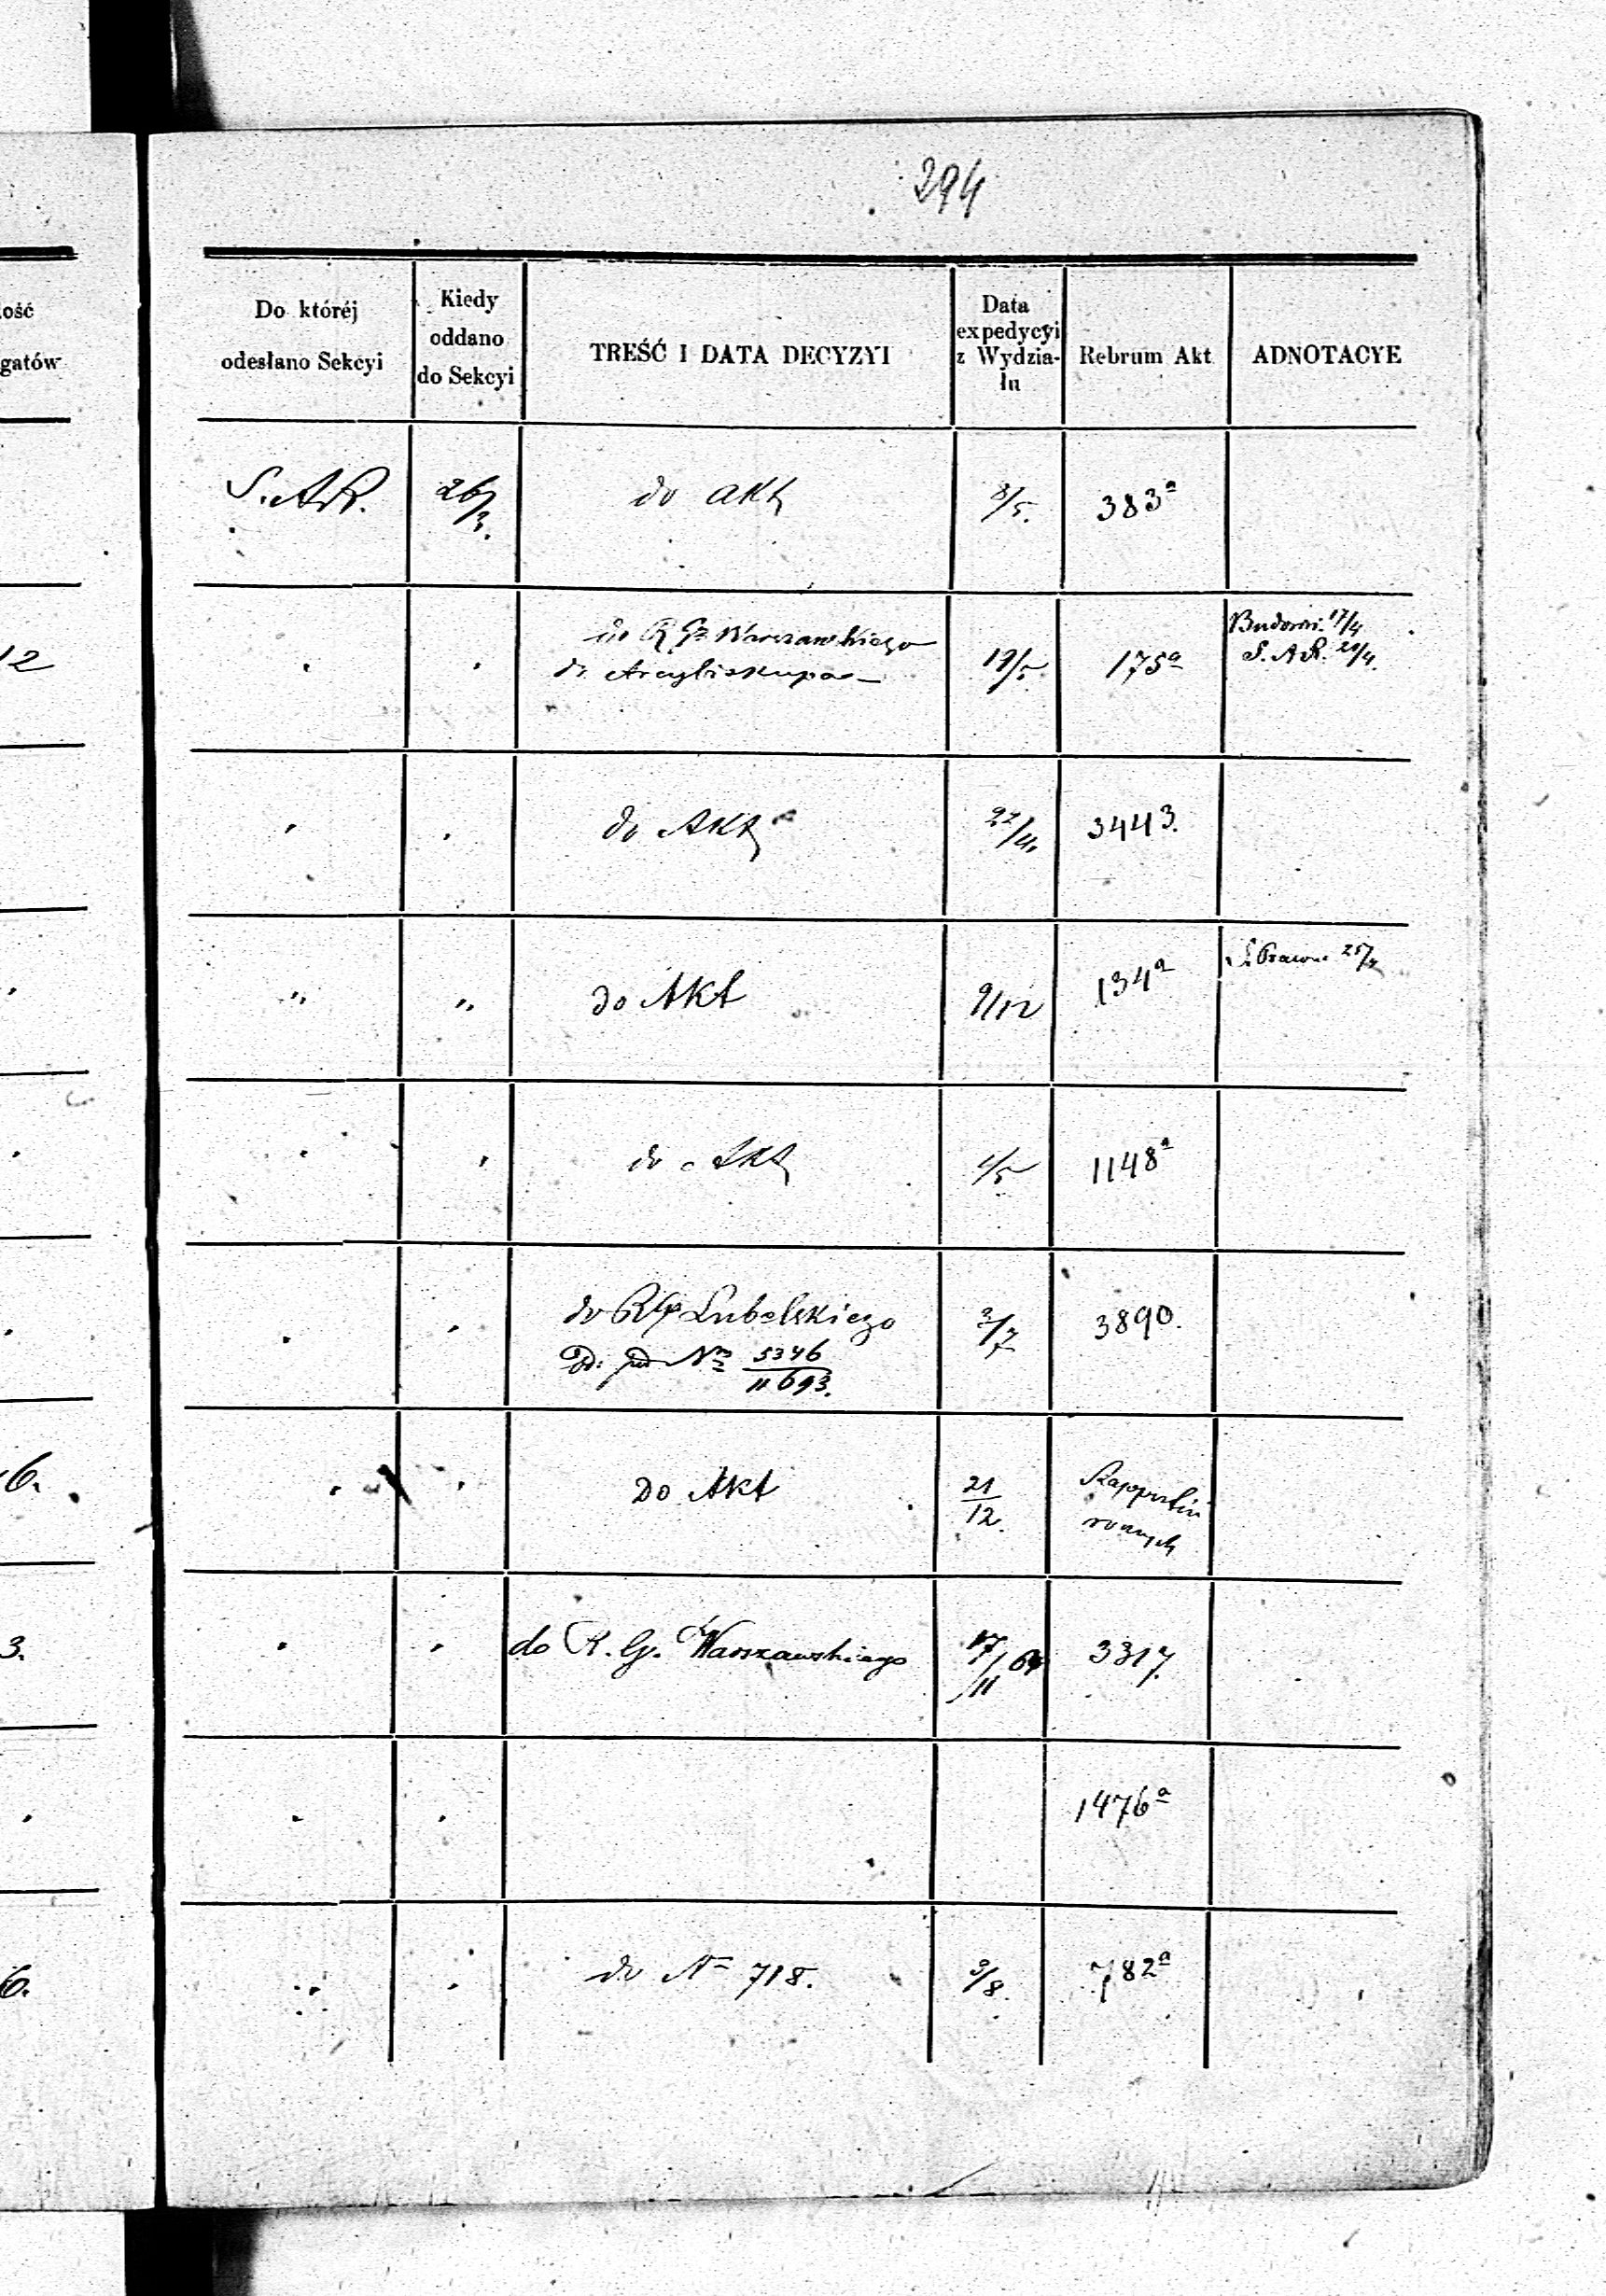 294
ość
gatów
Do któréj
odesłano Sekcyi
Kiedy
oddano
do Sekcyi
TREŚĆ I DATA DECYZYI
Data
expedycyi
z Wydzia-
łu
Rebrum Akt
ADNOTACYE
S.A.R. 26/3. do akt 8/5. 383a
12 " " do R G Warszawskiego
do Arcybiskupa 19/5 175a
17/4
S. A R. 21/4.
" " do Akt 22/4. 3443.
" " do Akt 9/12 134a
" " do Akt 1148a
" " do RG Lubelskiego 3/7 3890.
pod No 5346
11693.
6. " " Do Akt 21/12.
3. " " do R. G. Warszawskiego 17/11 64 3317.
" " 1476a
6. " " do No 718. 9/8. 782a